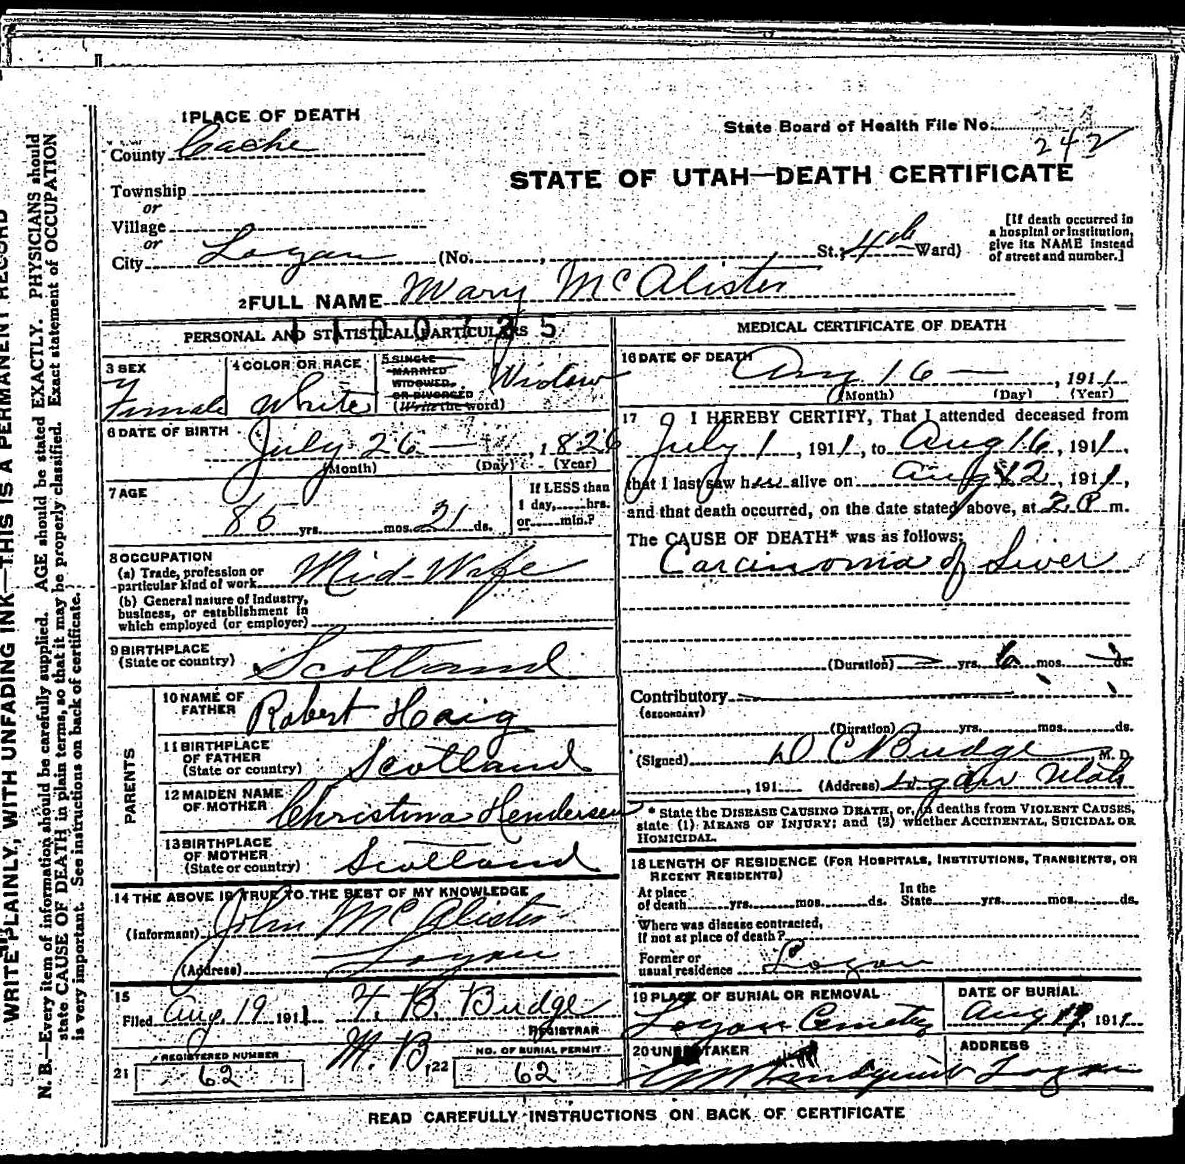 WRITE PLAINLY, WITH UNFADING INK—THIS IS A PERMANENT RECORD
N. B.—Every item of information should be carefully supplied. AGE should be stated EXACTLY. PHYSICIANS should
state CAUSE OF DEATH in plain terms, so that it may be properly classified. Exact statement of OCCUPATION
is very important. See instructions on back of certificate.
1 PLACE OF DEATH
County Cache
Township
or
Village
or
City Logan (No. , St.; 4th Ward)
State Board of Health File No. 242
STATE OF UTAH—DEATH CERTIFICATE
[If death occurred in
a hospital or institution,
give its NAME instead
of street and number.]
2 FULL NAME Mary McAlister
PERSONAL AND STATISTICAL PARTICULARS
3 SEX
Female
4 COLOR OR RACE
White
5 SINGLE
MARRIED
WIDOWED
OR DIVORCED
(Write the word)
Widow
6 DATE OF BIRTH
July 26 — , 1826
(Month) (Day) (Year)
7 AGE
85 yrs. mos. 21 ds.
If LESS than
1 day, hrs.
or min.?
8 OCCUPATION
(a) Trade, profession or
particular kind of work Mid-Wife
(b) General nature of Industry,
business, or establishment in
which employed (or employer)
9 BIRTHPLACE
(State or country) Scotland
PARENTS
10 NAME OF
FATHER Robert Haig
11 BIRTHPLACE
OF FATHER
(State or country) Scotland
12 MAIDEN NAME
OF MOTHER Christina Henderson
13 BIRTHPLACE
OF MOTHER
(State or country) Scotland
14 THE ABOVE IS TRUE TO THE BEST OF MY KNOWLEDGE
(Informant) John McAlister
(Address) Logan
15
Filed Aug 19 1911 F. B. Budge
REGISTRAR
M. B.
REGISTERED NUMBER
21 62
NO. OF BURIAL PERMIT
22 62
MEDICAL CERTIFICATE OF DEATH
16 DATE OF DEATH
Aug 16 — , 1911
(Month) (Day) (Year)
17 I HEREBY CERTIFY, That I attended deceased from
July 1, 1911, to Aug 16, 1911,
that I last saw her alive on Aug 12, 1911,
and that death occurred, on the date stated above, at 2 P m.
The CAUSE OF DEATH* was as follows:
Carcinoma of Liver
(Duration) — yrs. 6 mos. ds.
Contributory
(SECONDARY)
(Duration) yrs. mos. ds.
(Signed) D C Budge M. D.
, 191 (Address) Logan Utah
* State the DISEASE CAUSING DEATH, or, in deaths from VIOLENT CAUSES,
state (1) MEANS OF INJURY; and (2) whether ACCIDENTAL, SUICIDAL OR
HOMICIDAL.
18 LENGTH OF RESIDENCE (FOR HOSPITALS, INSTITUTIONS, TRANSIENTS, OR
RECENT RESIDENTS)
At place
of death yrs. mos. ds.
In the
State yrs. mos. ds.
Where was disease contracted,
if not at place of death?
Former or
usual residence Logan
19 PLACE OF BURIAL OR REMOVAL
Logan Cemetery
DATE OF BURIAL
Aug 19, 1911
20 UNDERTAKER
ADDRESS
Logan
READ CAREFULLY INSTRUCTIONS ON BACK OF CERTIFICATE